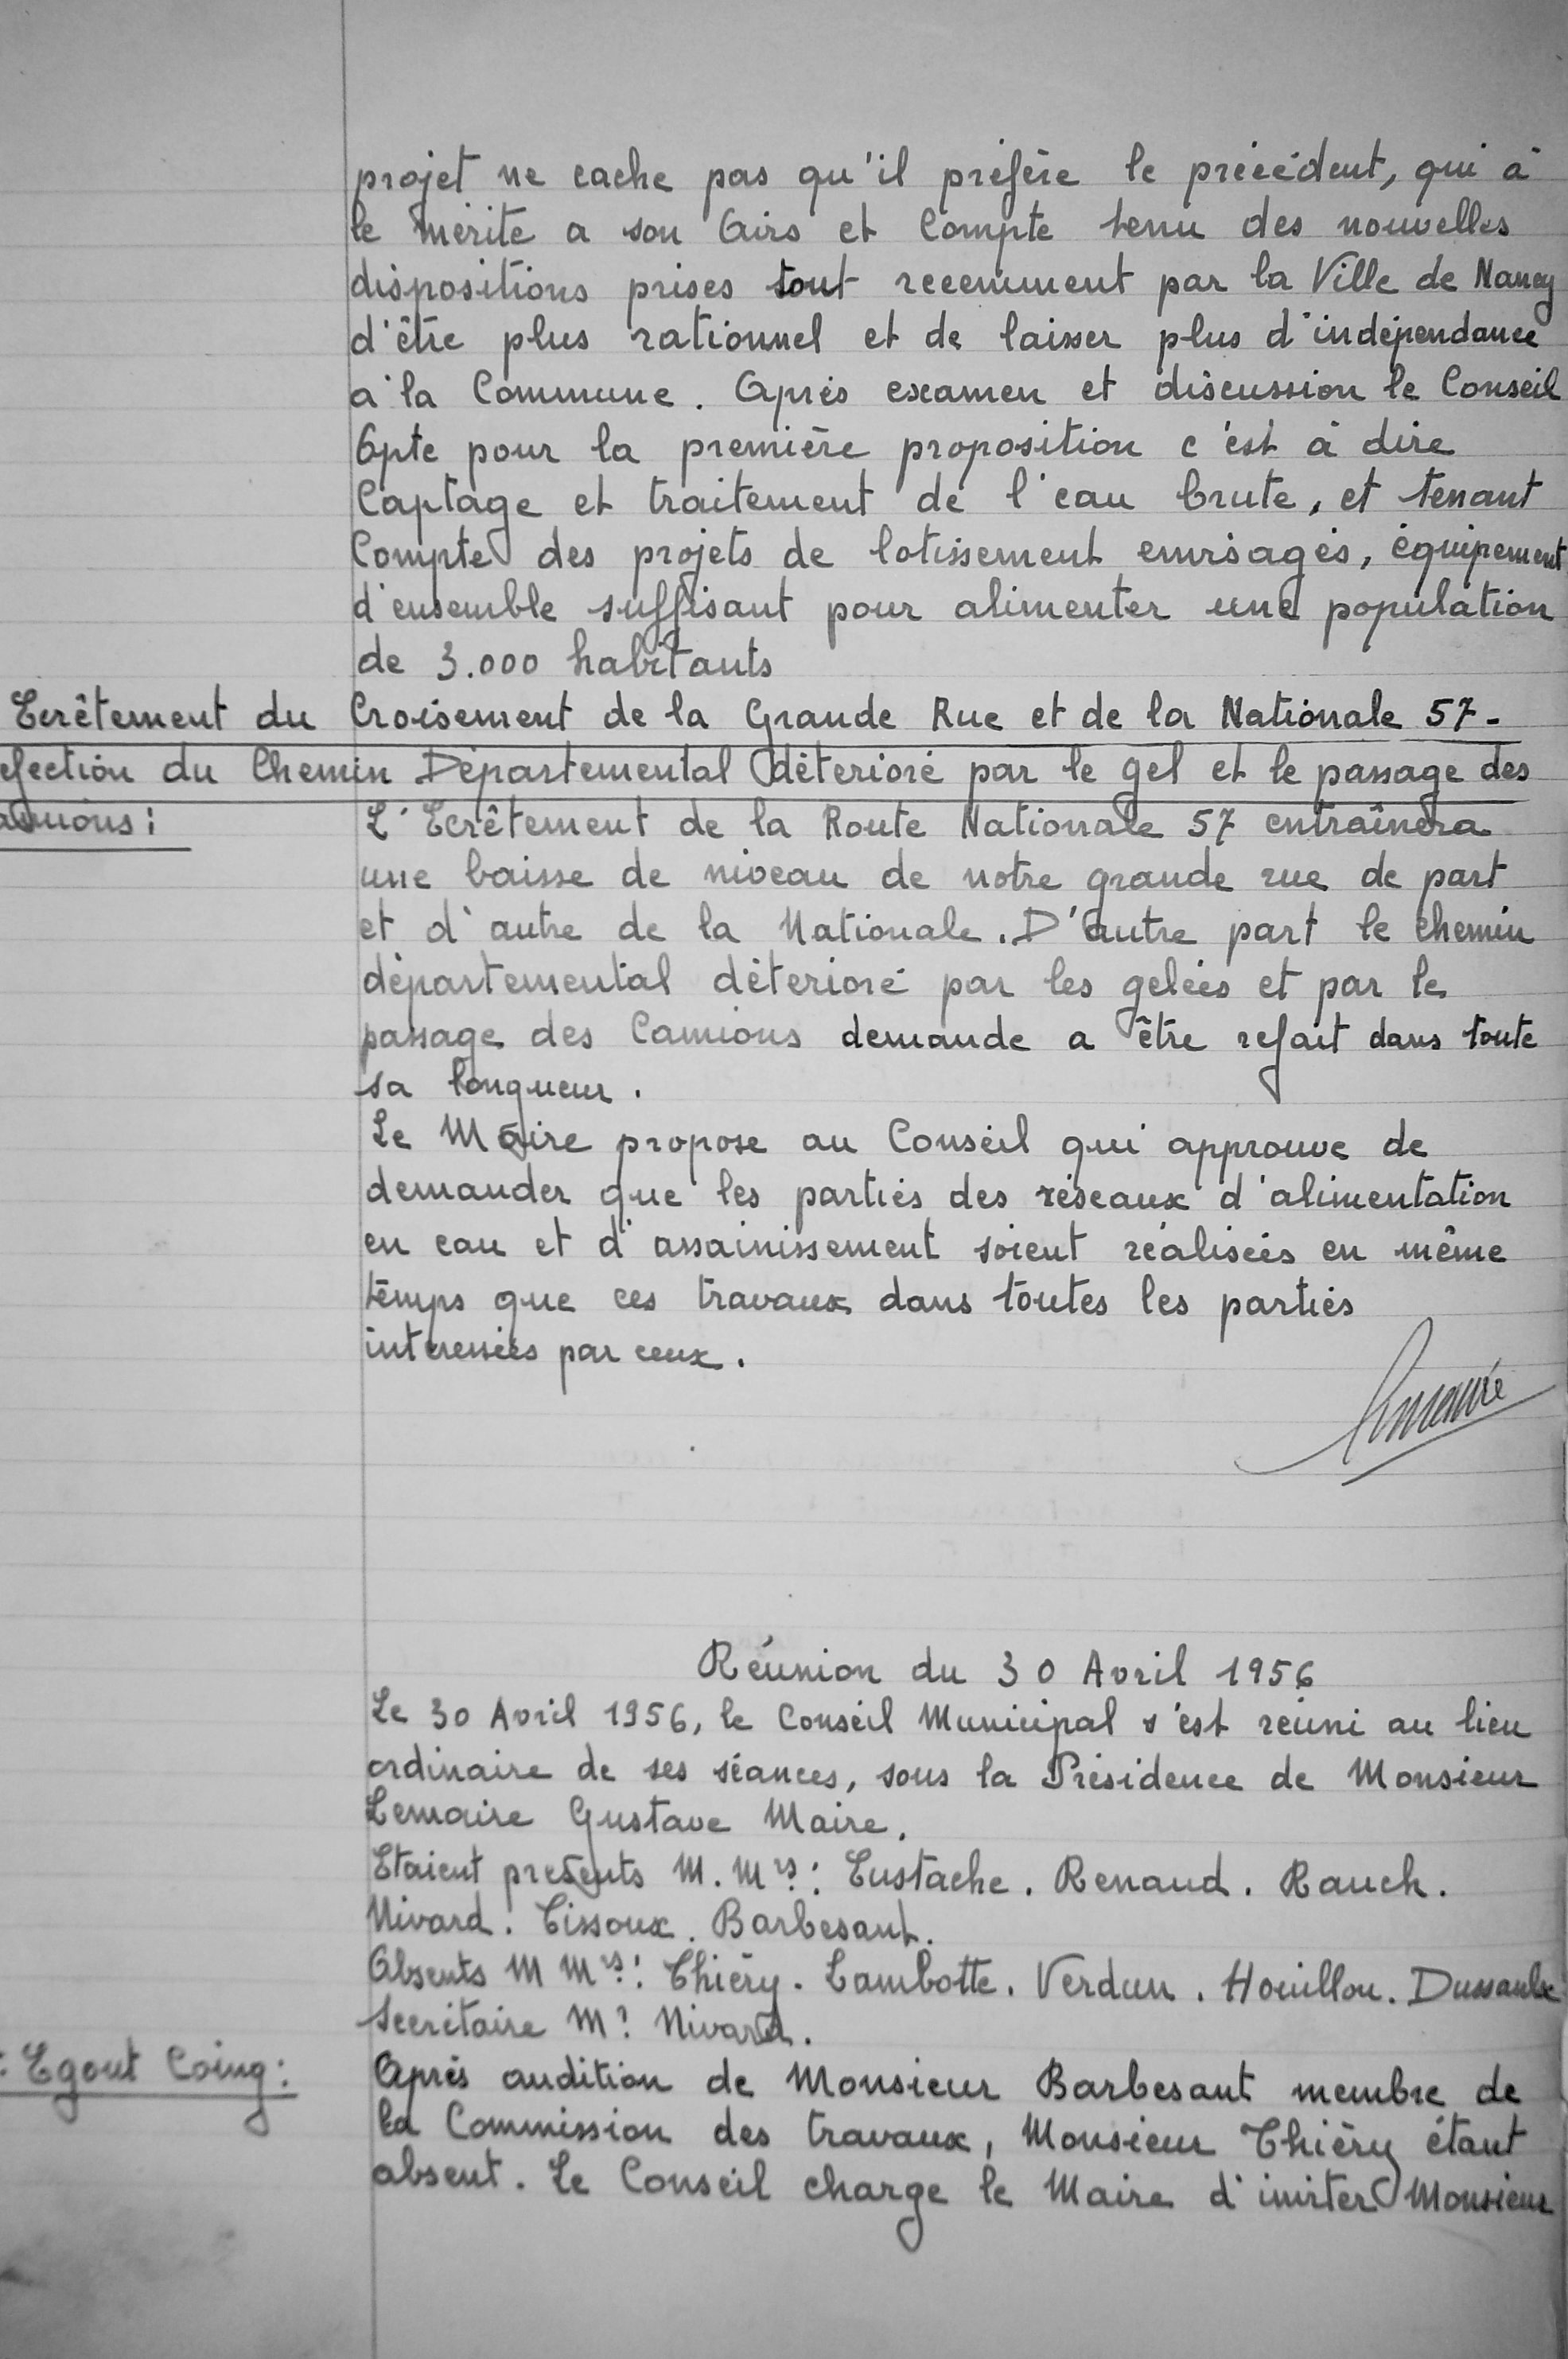 projet ne cache pas qu'il préfère le précédent, qui à
le mérite a son Avis et Compte tenu des nouvelles
dispositions prises tout recemment par la Ville de Nancy
d'être plus rationnel et de laisser plus d'indépendance
a la Commune. Après examen et discussion le Conseil
Opte pour la première proposition c'est à dire
Captage et traitement de l'eau brute, et tenant
Compte des projets de lotissement envisagés, équipement
d'ensemble suffisant pour alimenter une population
de 3.000 habitants
Ecrêtement du Croisement de la Grande Rue et de la Nationale 57-
efection du Chemin Départemental déterioré par le gel et le passage des
amions:
L'Ecrêtement de la Route Nationale 57 entraînera
une baisse de niveau de notre grande rue de part
et d'autre de la Nationale. D'autre part le chemin
départemental déterioré par les gelées et par le
passage des Camions demande a être refait dans toute
sa longueur.
Le Maire propose au Conseil qui approuve de
demander que les parties des réseaux d'alimentation
en eau et d'assainissement soient réalisées en même
temps que ces travaux dans toutes les parties
interessées par ceux.
Réunion du 30 Avril 1956
Le 30 Avril 1956, le Conseil Municipal s'est réuni au lieu
ordinaire de ses séances, sous la Présidence de Monsieur
Lemaire Gustave Maire.
Etaient présents M. Mrs: Eustache. Renaud. Rauch.
Nivard. Tissoux. Barbesant.
Absents M Mrs: Thiéry. Lambotte. Verdun. Houillon. Dussaulx
Secrétaire Mr Nivard.
: Egout Coing:
Après audition de Monsieur Barbesant membre de
la Commission des travaux, Monsieur Thiéry étant
absent. Le Conseil charge le Maire d'inviter Monsieur